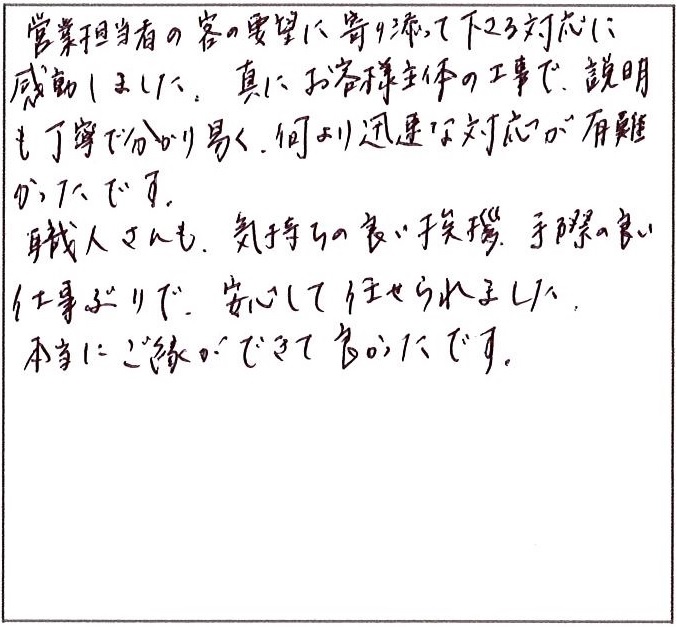 営業担当者の客の要望に寄り添って下さる対応に
感動しました。真にお客様主体の工事で、説明
も丁寧で分かり易く、何より迅速な対応が有難
かったです。
職人さんも、気持ちの良い挨拶、手際の良い
仕事ぶりで、安心して任せられました。
本当にご縁ができて良かったです。